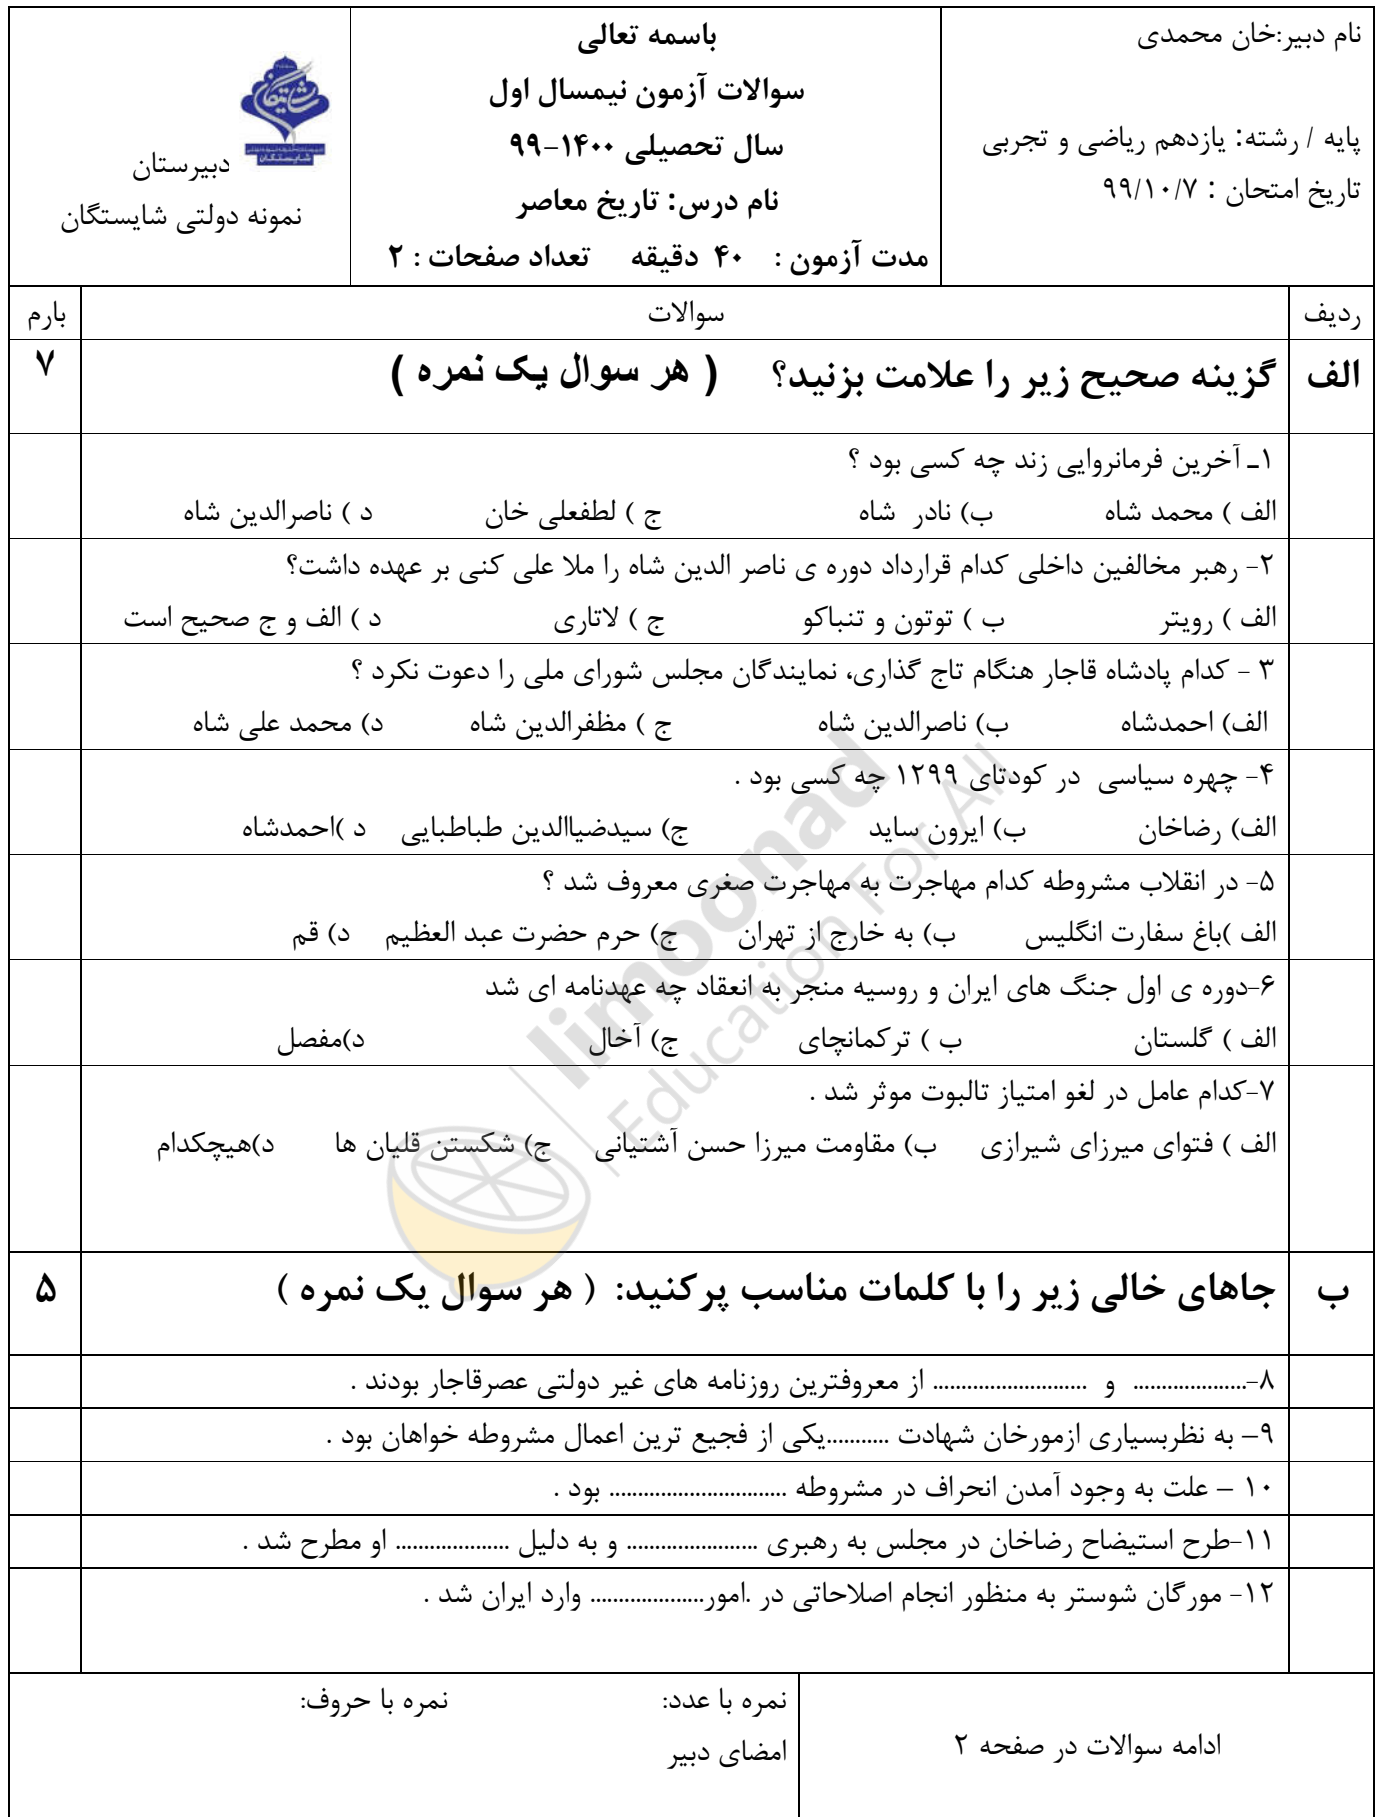 نام دبیر:خان محمدی
پایه / رشته: یازدهم ریاضی و تجربی
تاریخ امتحان : ۹۹/۱۰/۷
باسمه تعالی
سوالات آزمون نیمسال اول
سال تحصیلی ۱۴۰۰-۹۹
نام درس: تاریخ معاصر
مدت آزمون : ۴۰ دقیقه تعداد صفحات : ۲
شایستگان
دبیرستان
نمونه دولتی شایستگان
ردیف سوالات بارم
الف گزینه صحیح زیر را علامت بزنید؟ ( هر سوال یک نمره ) ۷
۱ـ آخرین فرمانروایی زند چه کسی بود ؟
الف ) محمد شاه ب) نادر شاه ج ) لطفعلی خان د ) ناصرالدین شاه
۲- رهبر مخالفین داخلی کدام قرارداد دوره ی ناصر الدین شاه را ملا علی کنی بر عهده داشت؟
الف ) رویتر ب ) توتون و تنباکو ج ) لاتاری د ) الف و ج صحیح است
۳ - کدام پادشاه قاجار هنگام تاج گذاری، نمایندگان مجلس شورای ملی را دعوت نکرد ؟
الف) احمدشاه ب) ناصرالدین شاه ج ) مظفرالدین شاه د) محمد علی شاه
۴- چهره سیاسی در کودتای ۱۲۹۹ چه کسی بود .
الف) رضاخان ب) ایرون ساید ج) سیدضیاالدین طباطبایی د )احمدشاه
۵- در انقلاب مشروطه کدام مهاجرت به مهاجرت صغری معروف شد ؟
الف )باغ سفارت انگلیس ب) به خارج از تهران ج) حرم حضرت عبد العظیم د) قم
۶-دوره ی اول جنگ های ایران و روسیه منجر به انعقاد چه عهدنامه ای شد
الف ) گلستان ب ) ترکمانچای ج) آخال د)مفصل
۷-کدام عامل در لغو امتیاز تالبوت موثر شد .
الف ) فتوای میرزای شیرازی ب) مقاومت میرزا حسن آشتیانی ج) شکستن قلیان ها د)هیچکدام
ب جاهای خالی زیر را با کلمات مناسب پرکنید: ( هر سوال یک نمره ) ۵
۸-.................... و ........................... از معروفترین روزنامه های غیر دولتی عصرقاجار بودند .
۹– به نظربسیاری ازمورخان شهادت ...........یکی از فجیع ترین اعمال مشروطه خواهان بود .
۱۰ – علت به وجود آمدن انحراف در مشروطه ............................... بود .
۱۱-طرح استیضاح رضاخان در مجلس به رهبری ....................... و به دلیل .................... او مطرح شد .
۱۲- مورگان شوستر به منظور انجام اصلاحاتی در .امور.................... وارد ایران شد .
ادامه سوالات در صفحه ۲
نمره با عدد: نمره با حروف:
امضای دبیر
limoonad
Education For All